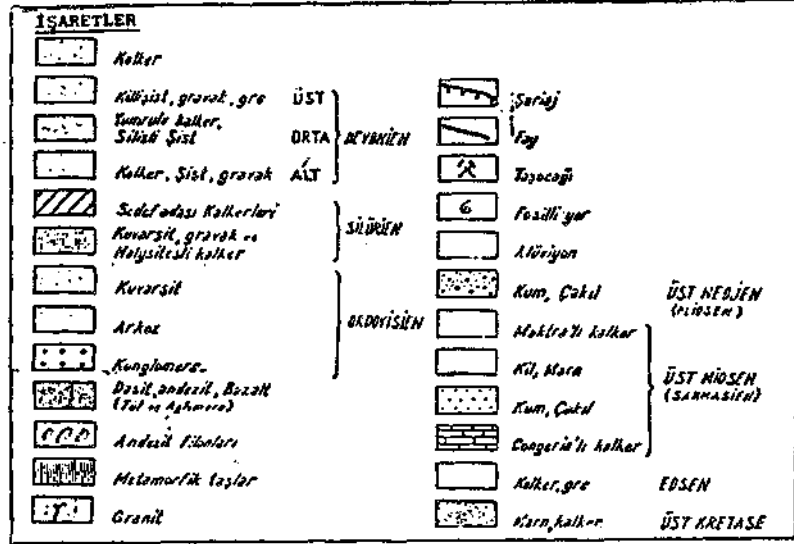 İŞARETLER
Kalker
Killişist, gravak, gre ÜST
Yumrulu kalker,
Silisli Şist ORTA
DEVONİEN
Kalker, Şist, gravak ALT
Sedefadası Kalkerleri
Kuvarsit, gravak ve
Halysitesli kalker
SİLÜRİEN
Kuvarsit
Arkoz
Konglomera
ORDOVİSİEN
Dasit, andezit, Bazalt
(Tüf ve Aglomera)
Andezit filonları
Metamorfik taşlar
Granit
Şariaj
Fay
Taşocağı
Fosilli yer
Alüviyon
Kum, Çakıl ÜST NEOJEN
(PLİOSEN)
Maktra'lı kalker
Kil, Marn
ÜST MİOSEN
(SARMASİEN)
Kum, Çakıl
Congeria'lı kalker
Kalker, gre EOSEN
Marn, kalker ÜST KRETASE